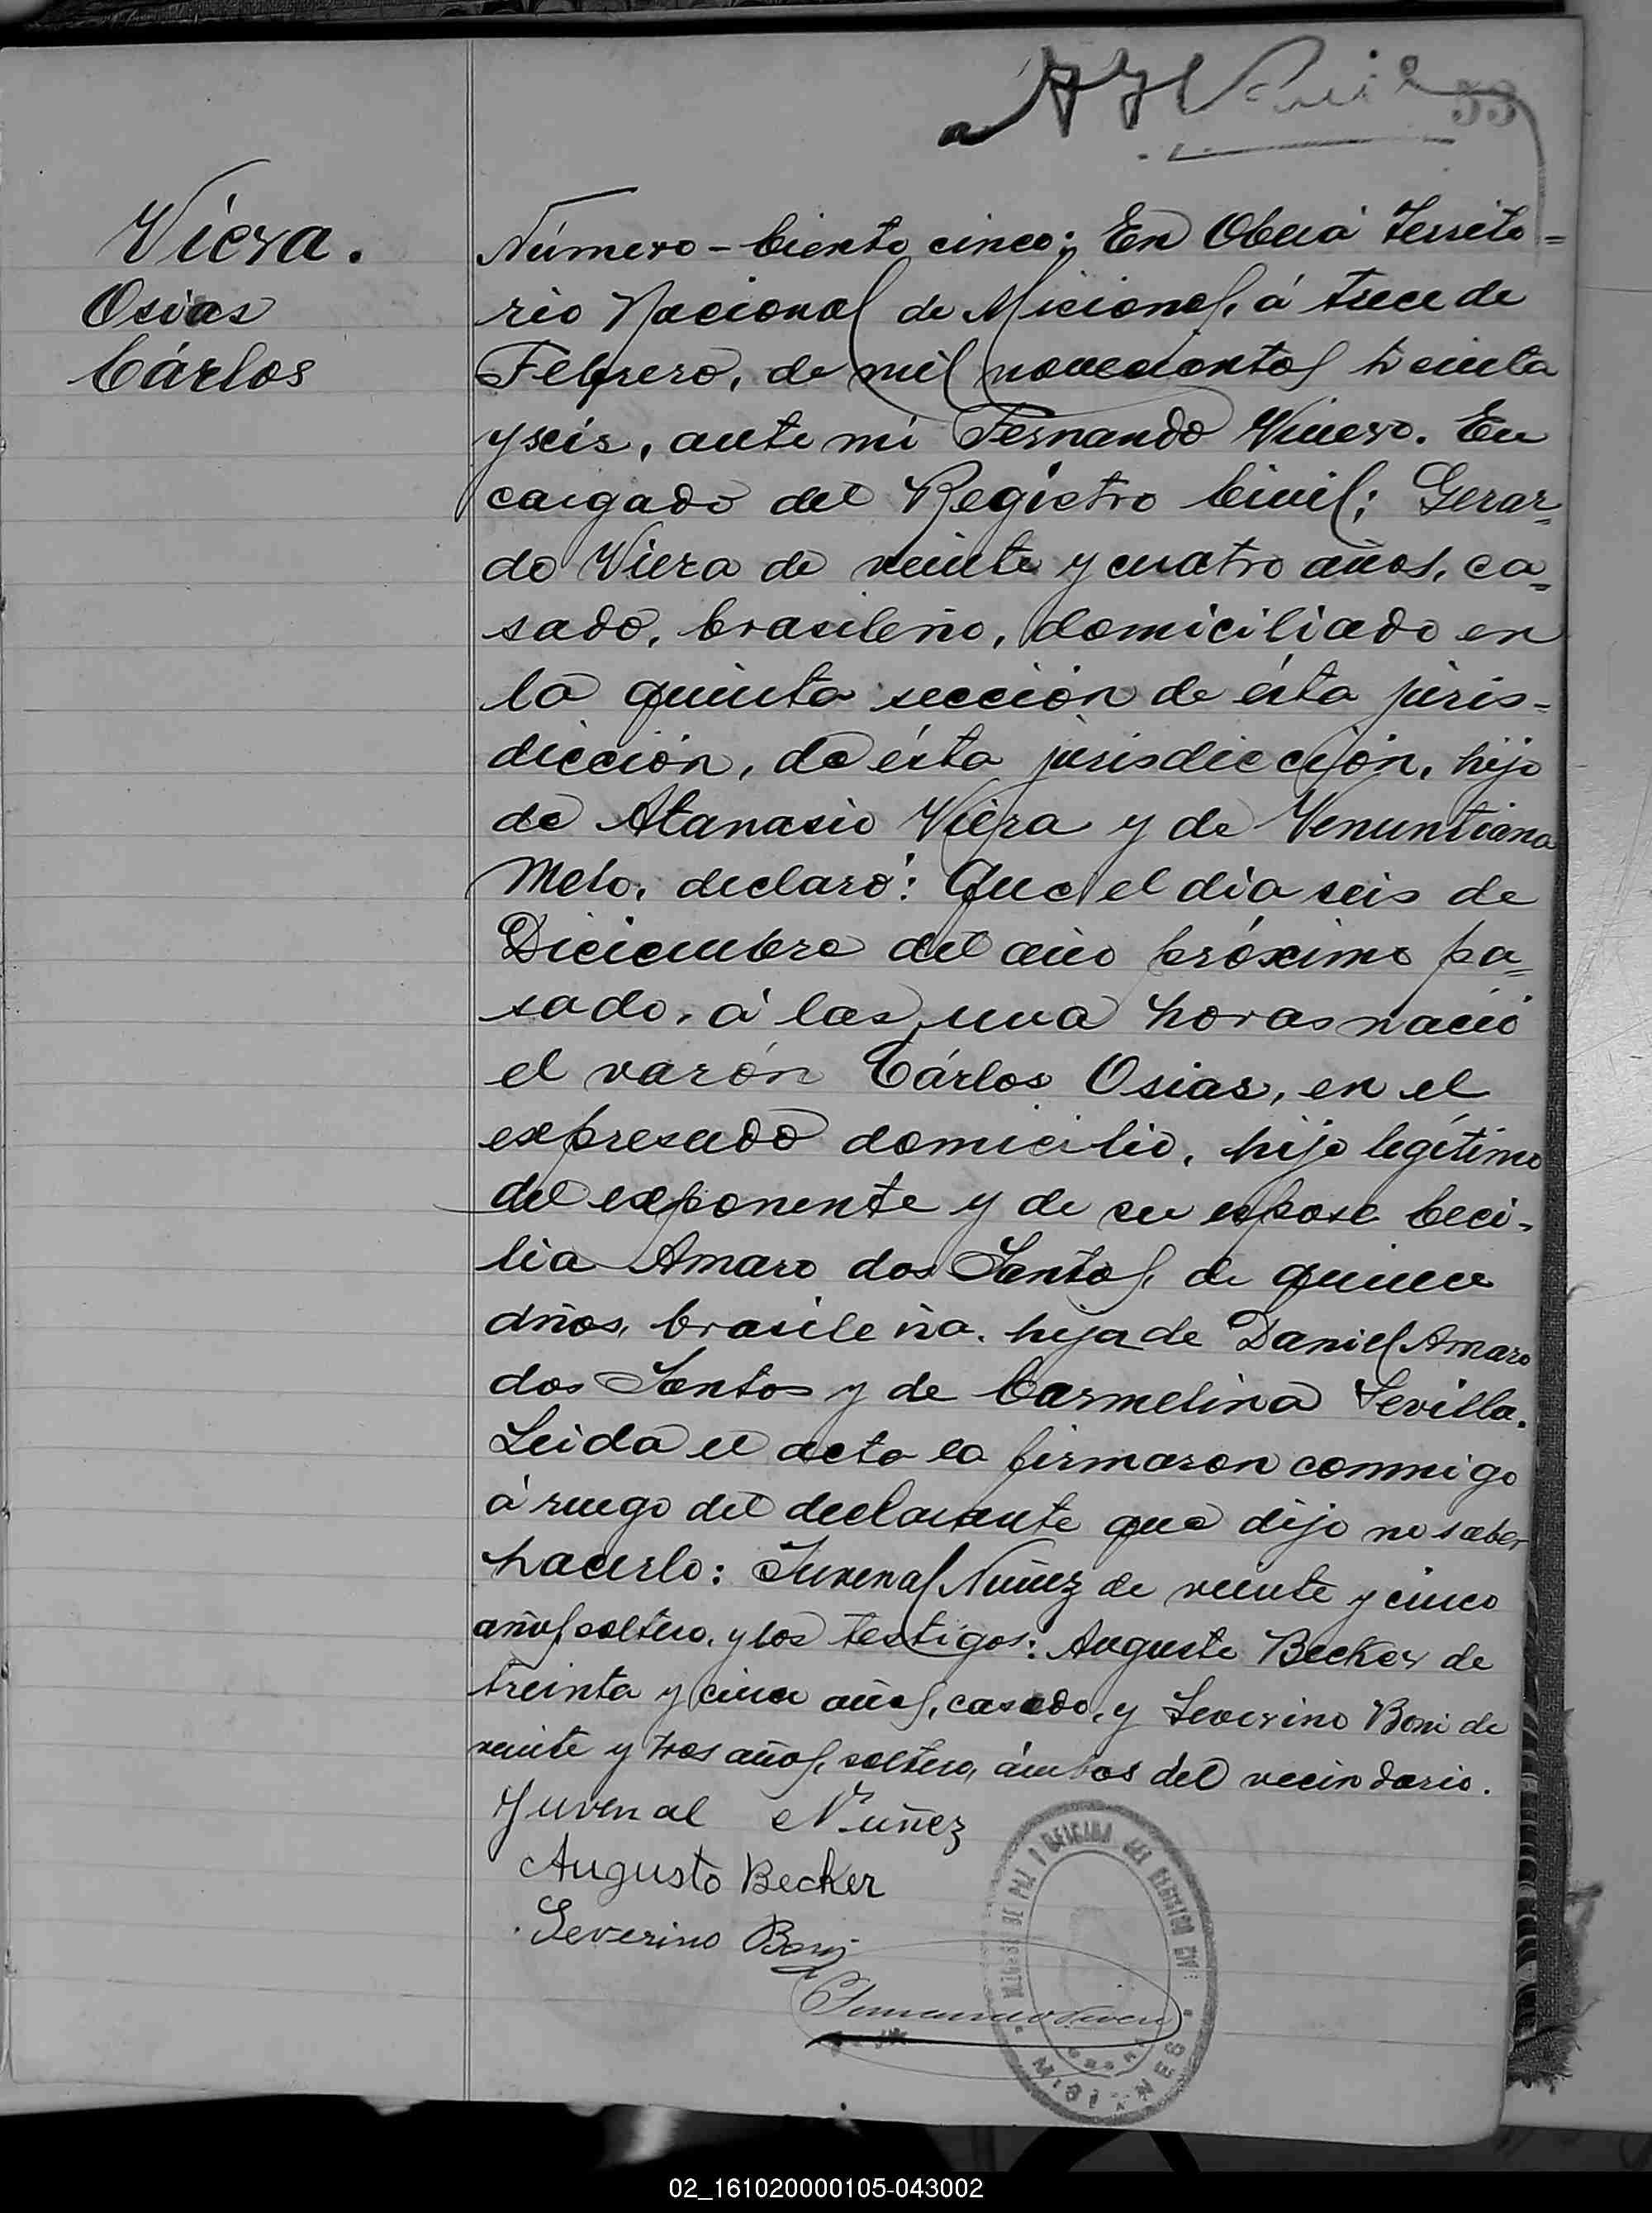 53
Viera.
Osias
Cárlos
Número - Ciento cinco: En Oberá Territo=
rio Nacional de Misiones, á trece de
Febrero, de mil novecientos treinta
y seis, ante mi Fernando Vivero. En
cargado del Registro Civil; Gerar=
do Viera de veinte y cuatro años, ca=
sado, brasileño, domiciliado en
la quinta sección de ésta juris=
dicción, de ésta jurisdicción, hijo
de Atanasio Viera y de Venuntiana
Melo, declaró: Que el día seis de
Diciembre del año próximo pa=
sado, á las una horas nació
el varón Cárlos Osias, en el
expresado domicilio, hijo legítimo
del exponente y de su esposa Ceci-
lia Amaro dos Santos, de quince
años, brasileña, hija de Daniel Amaro
dos Santos y de Carmelina Sevilla.
Leida el acta la firmaron conmigo
á ruego del declarante que dijo no saber
hacerlo: Juvenal Núñez de veinte y cinco
años, soltero, y los testigos: Augusto Becker de
treinta y cinco años, casado, y Severino Boni de
veinte y tres años, soltero, ámbos del vecindario.
Juvenal Núñez
Augusto Becker
Severino Boni
MISIONES
02_161020000105-043002